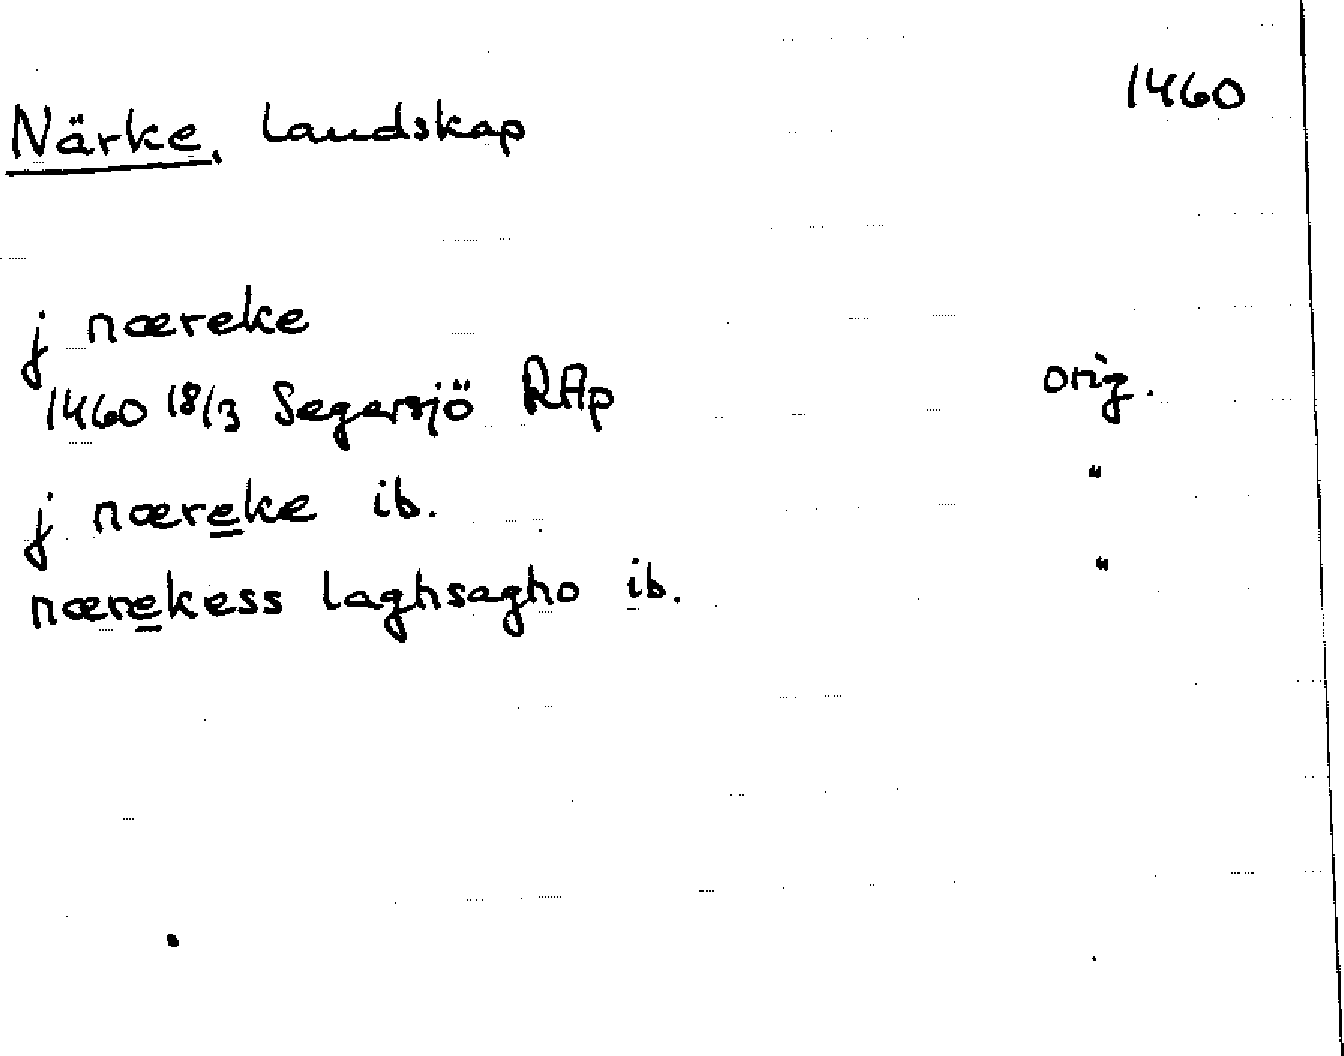 1460
Närke, landskap
j næreke
1460 18/3 Segersjö RAp orig.
j næreke ib. "
nærekess laghsagho ib. "